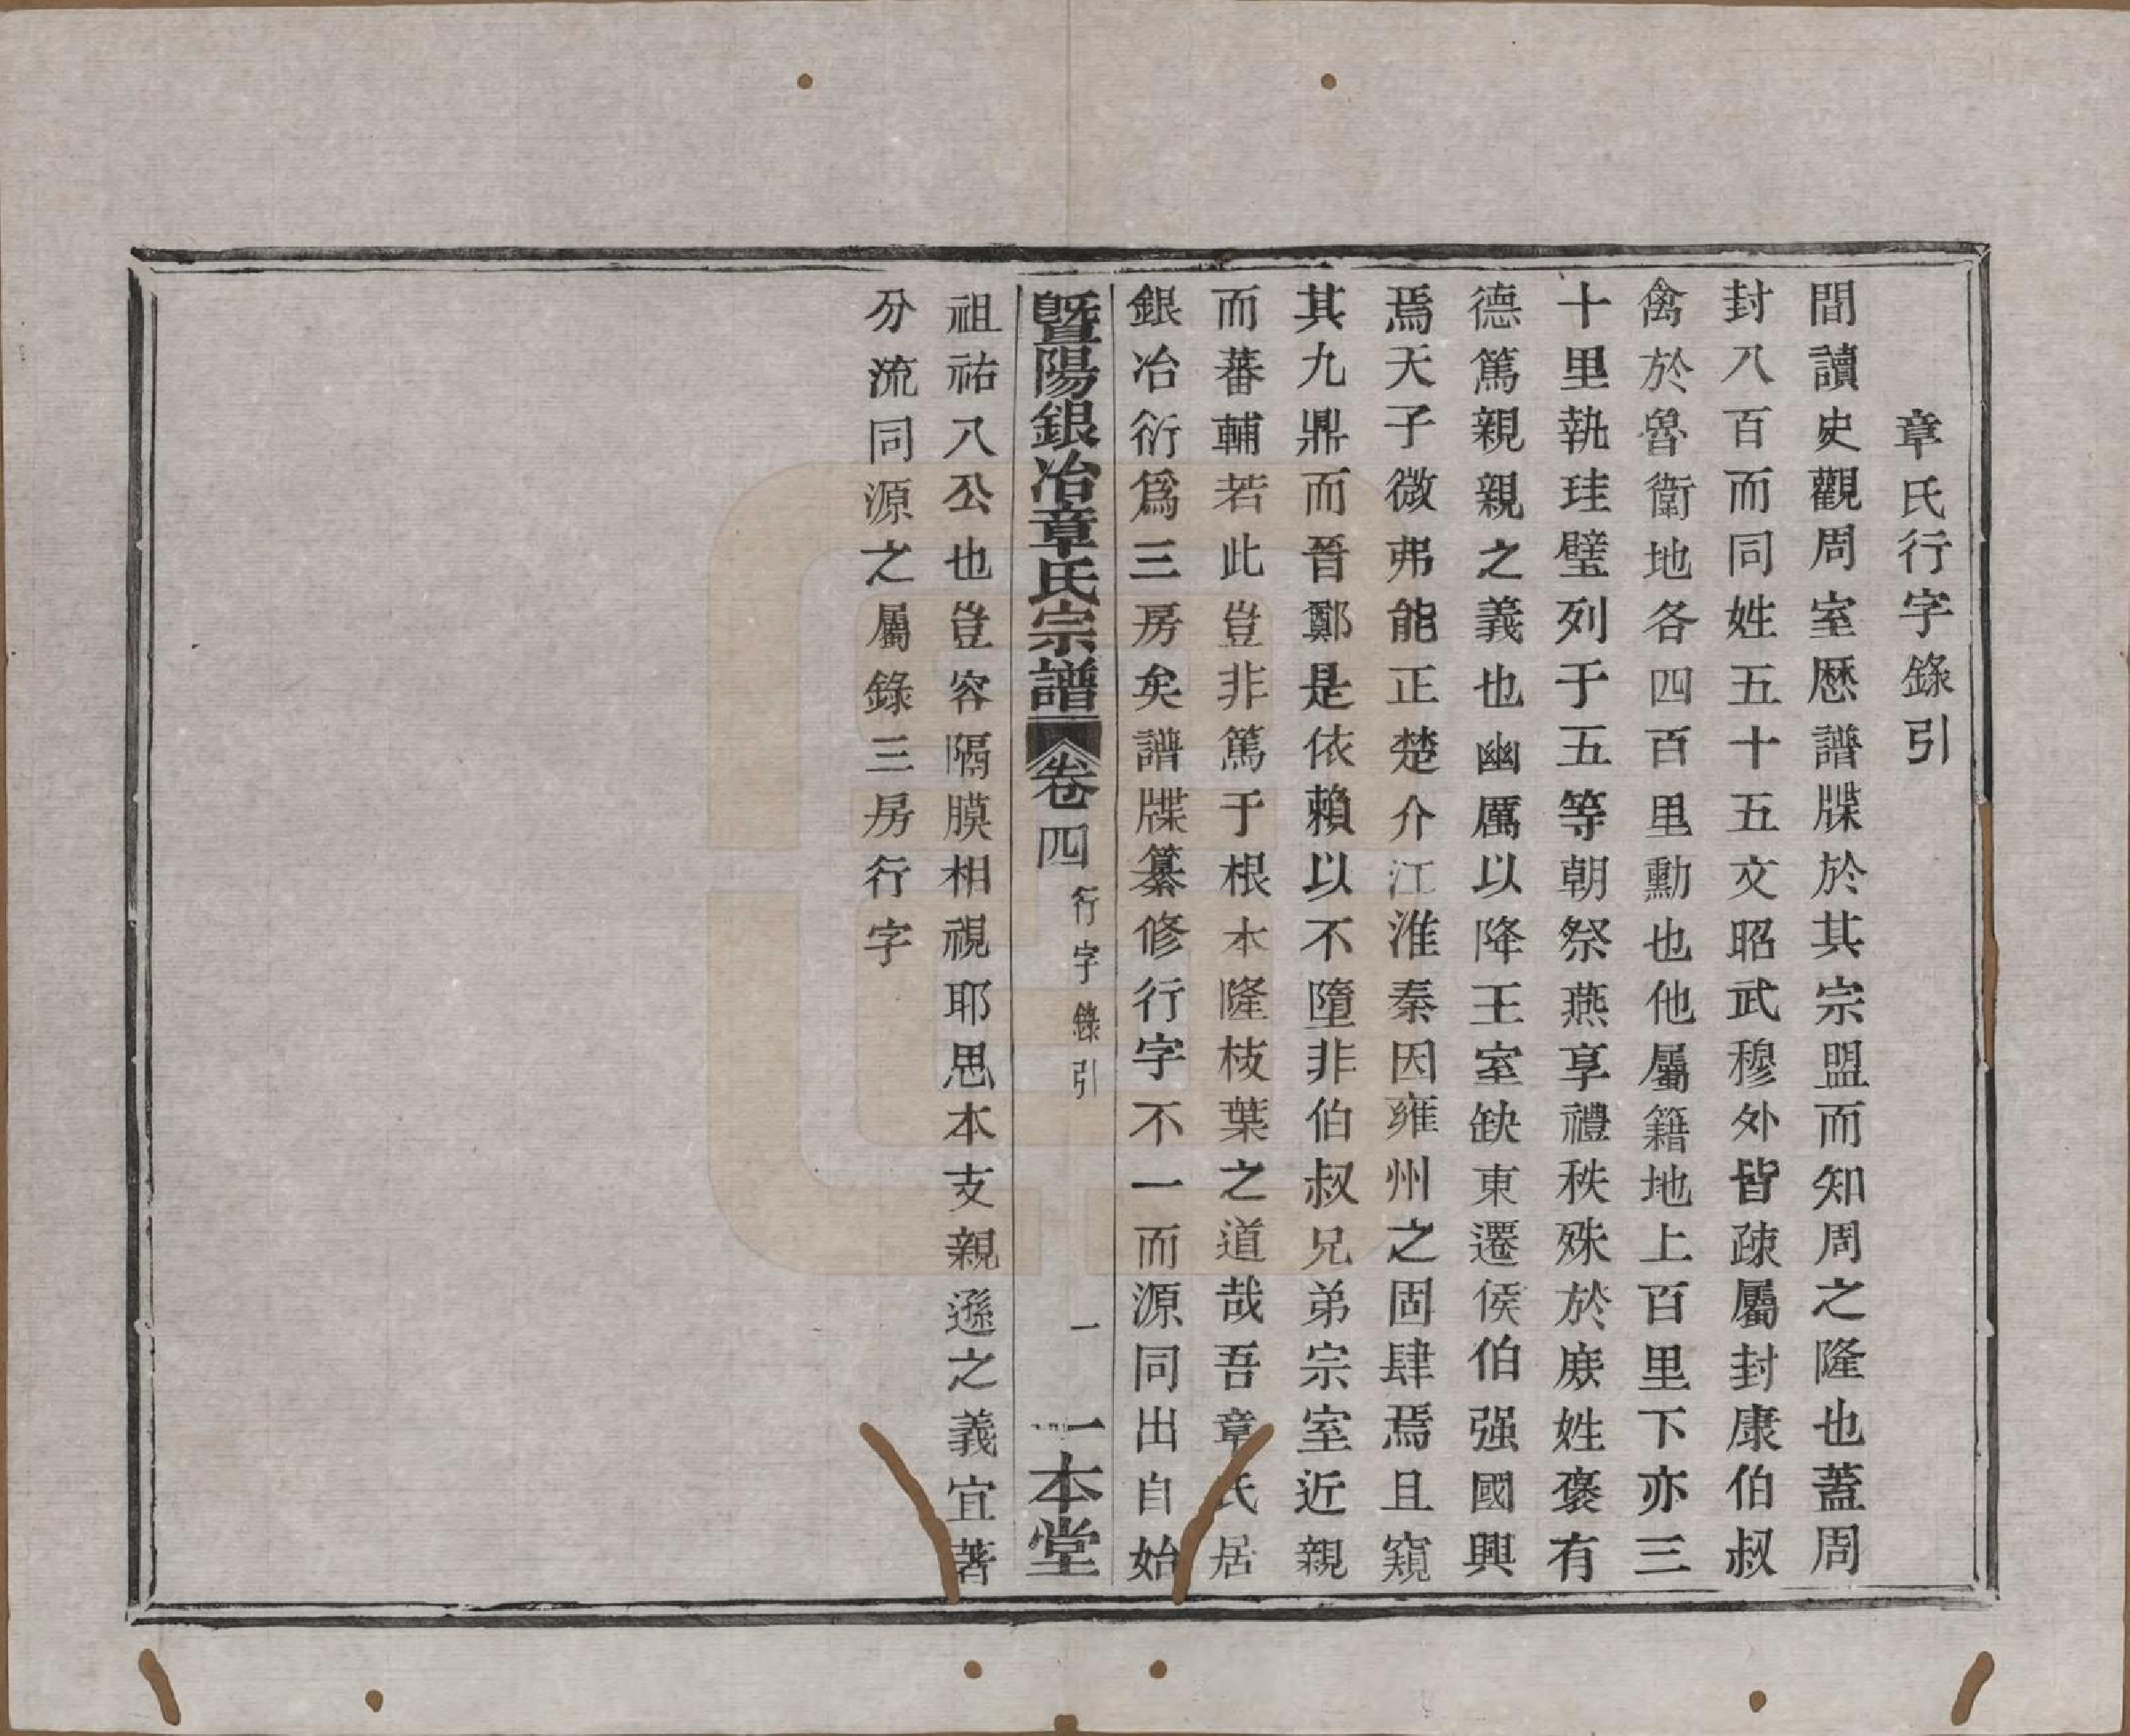 章氏行字錄引
間讀史觀周室歷譜牒於其宗盟而知周之隆也蓋周
封八百而同姓五十五文昭武穆外皆疎屬封康伯叔
禽於魯衛地各四百里勳也他屬籍地上百里下亦三
十里執珪璧列于五等朝祭燕享禮秩殊於庶姓褒有
德篤親親之義也幽厲以降王室缺東遷侯伯强國興
焉天子微弗能正楚介江淮秦因雍州之固肆焉且窺
其九鼎而晉鄭是依賴以不墮非伯叔兄弟宗室近親
而蕃輔若此豈非篤于根本隆枝葉之道哉吾章氏居
銀冶衍爲三房矣譜牒纂修行字不一而源同出自始
暨陽銀冶章氏宗譜 卷四 行字錄引 一 一本堂
祖祐八公也豈容隔膜相視耶思本支親遜之義宜著
分流同源之屬錄三房行字